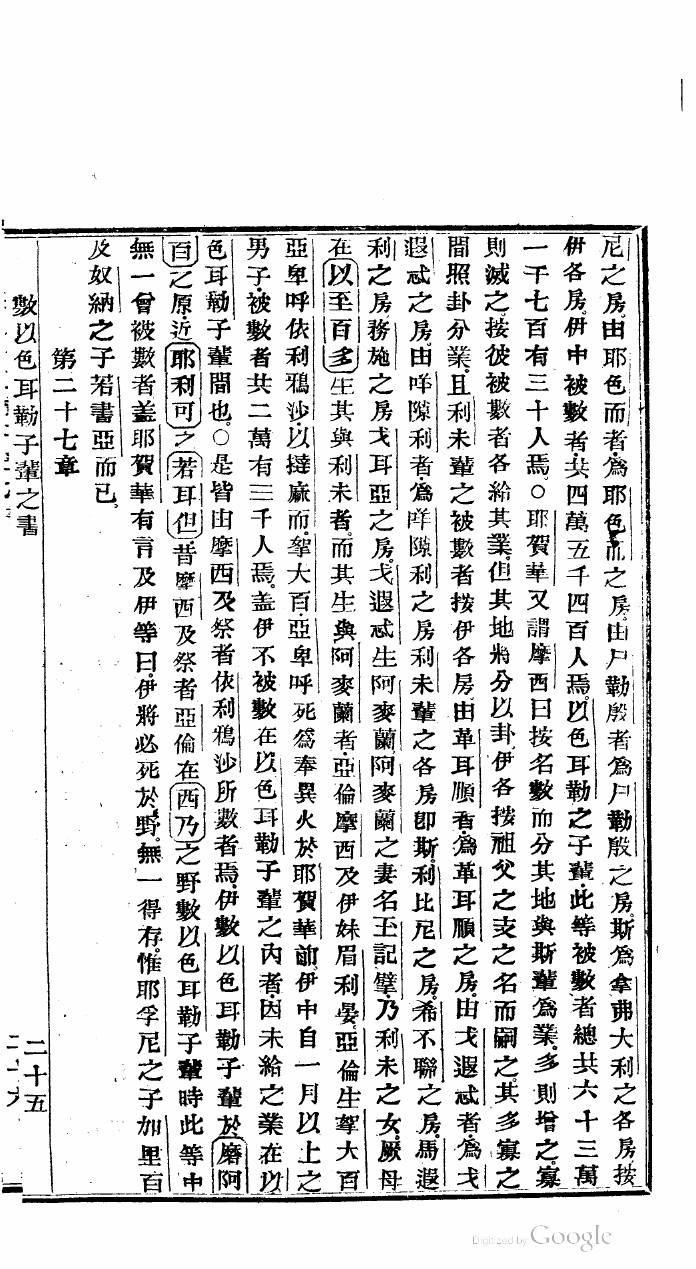 尼之房。由耶色而者、爲耶色而之房。由尸勒殷者爲尸勒殷之房。斯爲拿弗大利之各房按
伊各房。伊中被數者、共四萬五千四百人焉。以色耳勒之子輩、此等被數者總共六十三萬
一千七百有三十人焉。○耶賀華又謂摩西曰按名數而分其地與斯輩爲業。多則增之、寡
則滅之。按彼被數者各給其業。但其地將分以卦、伊各按祖父之支之名而嗣之。其多寡之
間照卦分業。且利未輩之被數者按伊各房。由革耳順者、爲革耳順之房。由戈遐忒者、爲戈
遐忒之房。由咩隙利者、爲咩隙利之房利未輩之各房卽斯。利比尼之房。希不聯之房。馬遐
利之房務施之房戈耳亞之房。戈遐忒生阿麥蘭阿麥蘭之妻名王記擘、乃利未之女、厥母
在以至百多生其與利未者。而其生與阿麥蘭者、亞倫摩西及伊妹眉利晏。亞倫生拏大百
亞卑呼依利鴉沙、以撻麻而。拏大百、亞卑呼死爲奉異火於耶賀華前。伊中自一月以上之
男子、被數者共二萬有三千人焉。盖伊不被數在以色耳勒子輩之內者、因未給之業在以
色耳勒子輩間也。○是皆由摩西及祭者依利鴉沙所數者焉。伊數以色耳勒子輩於磨阿
百之原、近耶利可之若耳但昔摩西及祭者亞倫在西乃之野數以色耳勒子輩時此等中
無一曾被數者盖耶賀華有言及伊等曰。伊將必死於野。無一得存。惟耶孚尼之子加里百
及奴納之子若書亞而已。
第二十七章
數以色耳勒子輩之書
二十五
Digitized by Google